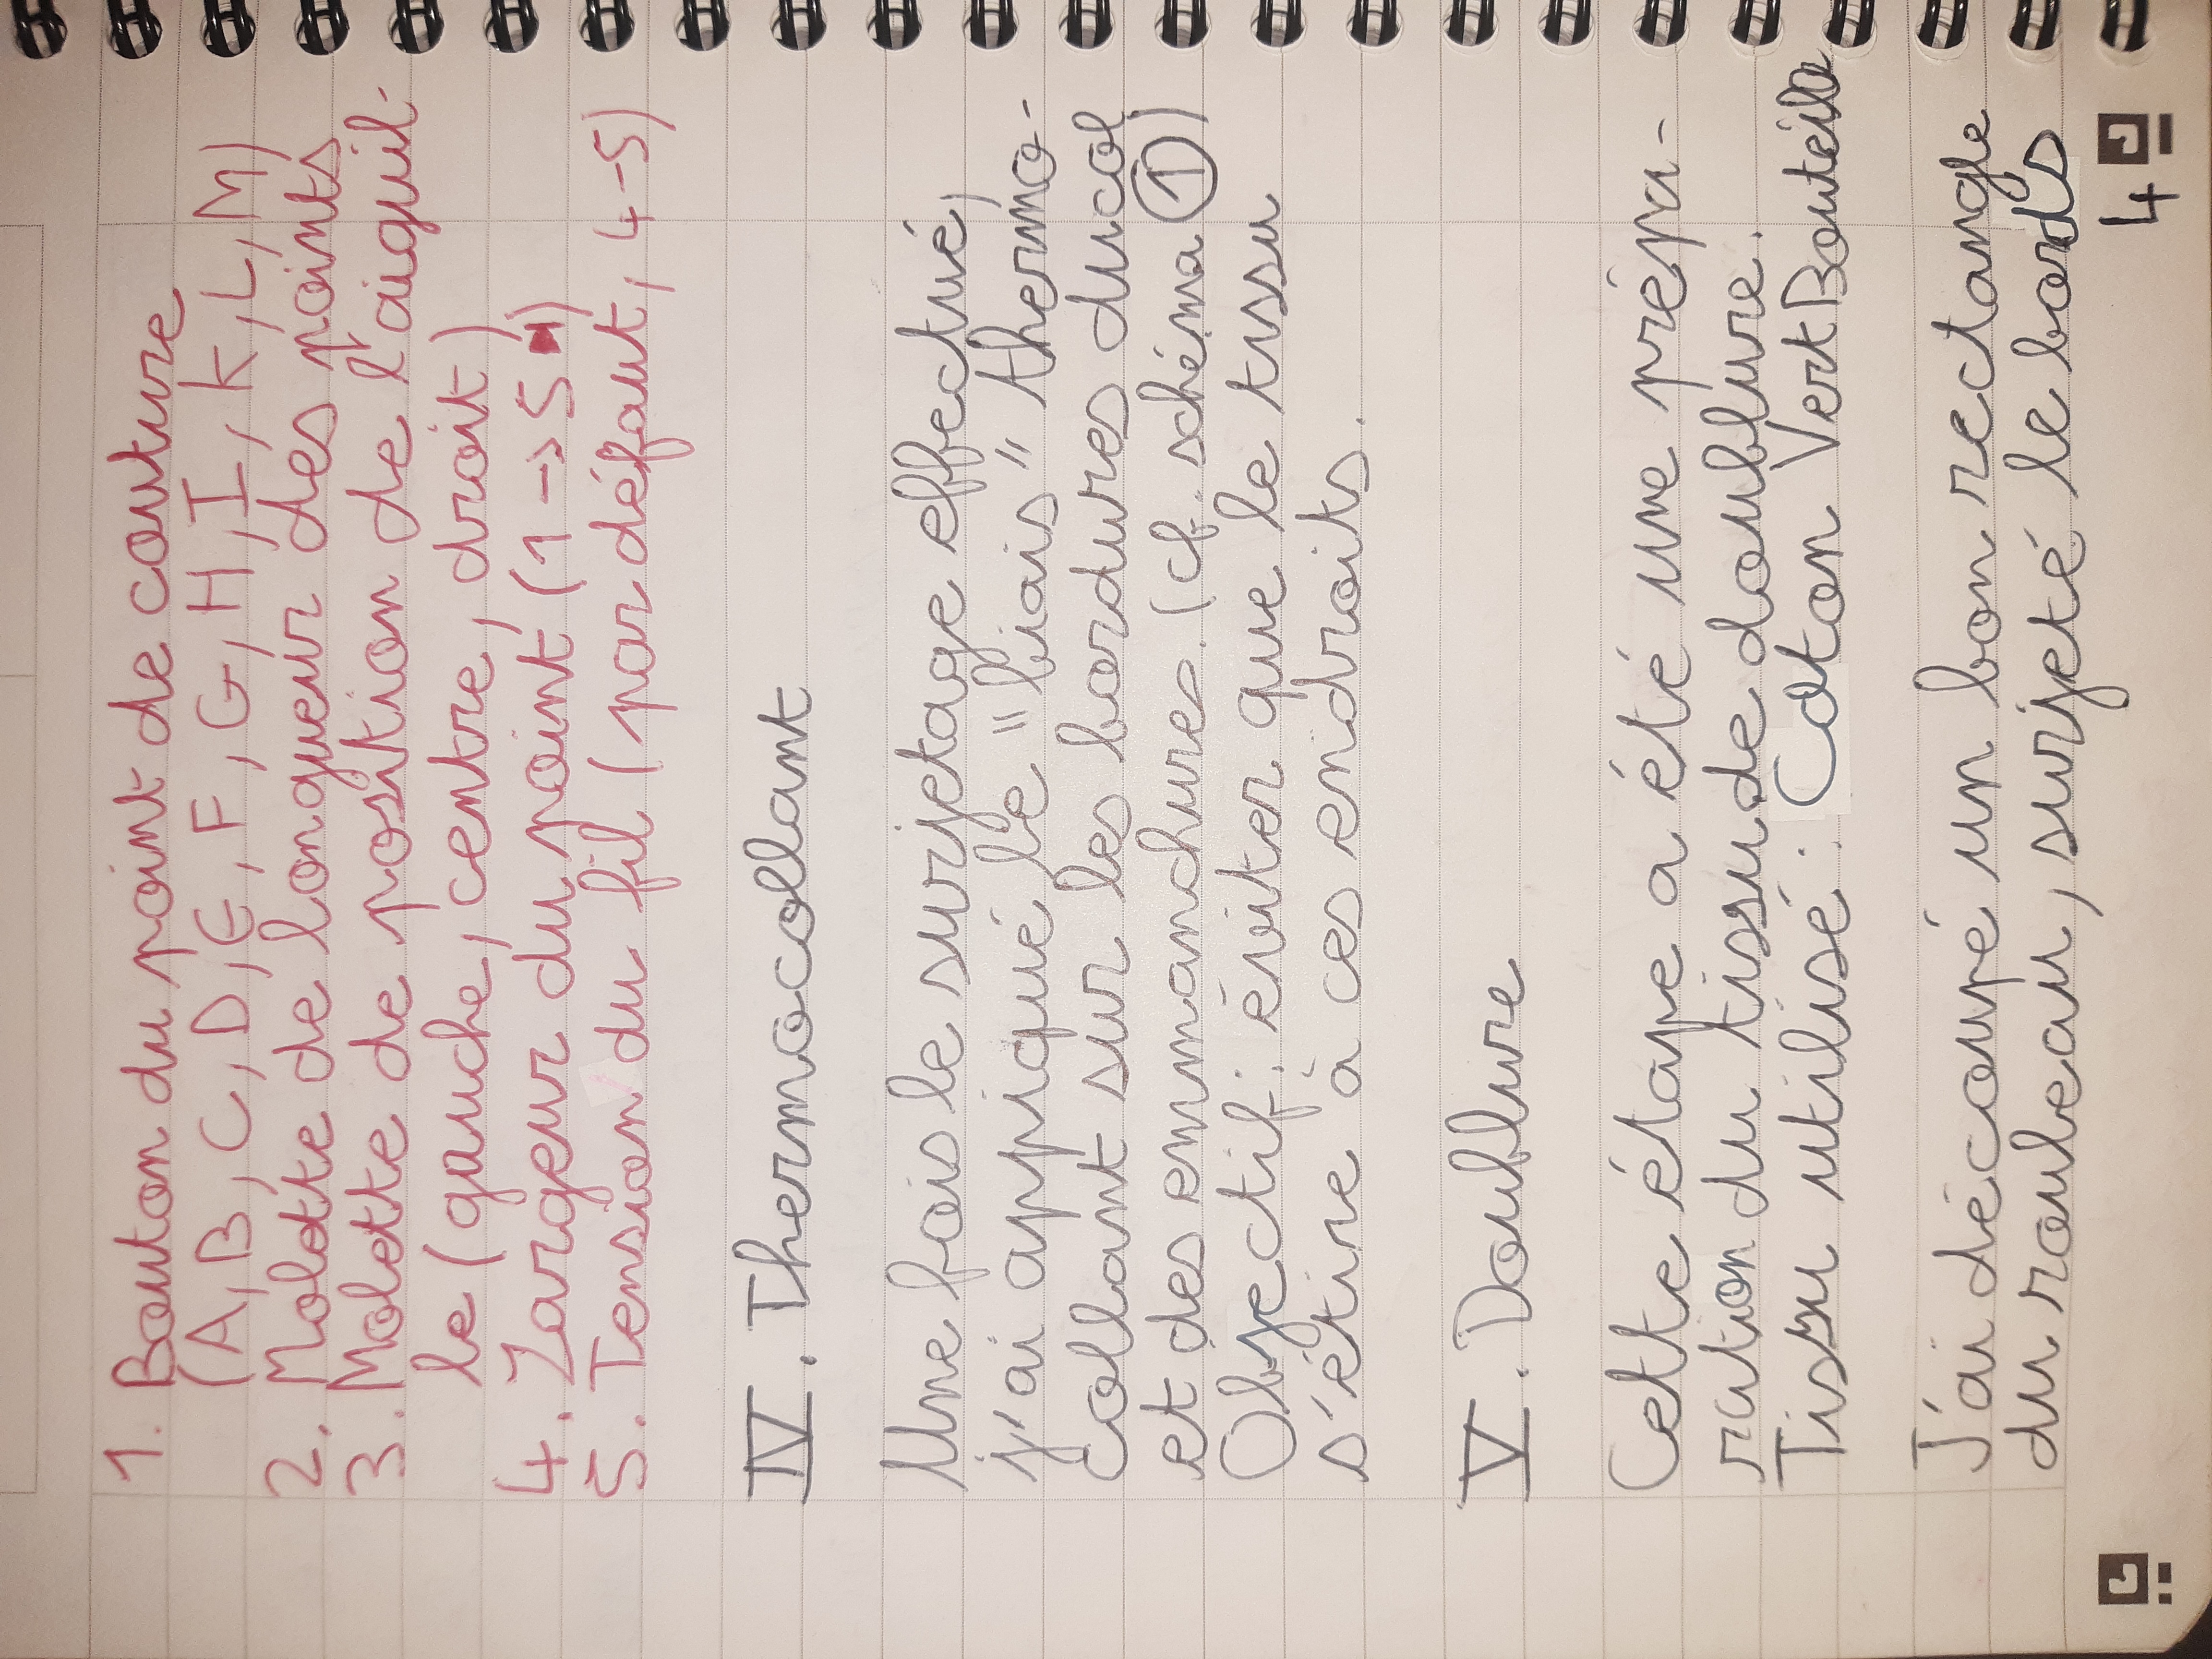 1. Bouton du point de couture
(A, B, C, D, E, F, G, H, I, K, L, M)
2. Molette de longueur des points
3. Molette de position de l'aiguil-
le (gauche, centre, droit)
4. Largeur du point (1 → 5)
5. Tension du fil (par défaut, 4-5)
IV. Thermocollant
Une fois le surjetage effectué,
j'ai appiqué le "biais" thermo-
collant sur les bordures du col
et des emmanchures. (cf. schéma 1)
Objectif : éviter que le tissu
s'étire à ces endroits.
V. Doublure
Cette étape a été une prépa-
ration du tissu de doublure.
Tissu utilisé : Coton Vert Bouteille
J'ai découpé un bon rectangle
du rouleau, surjeté le bords
4